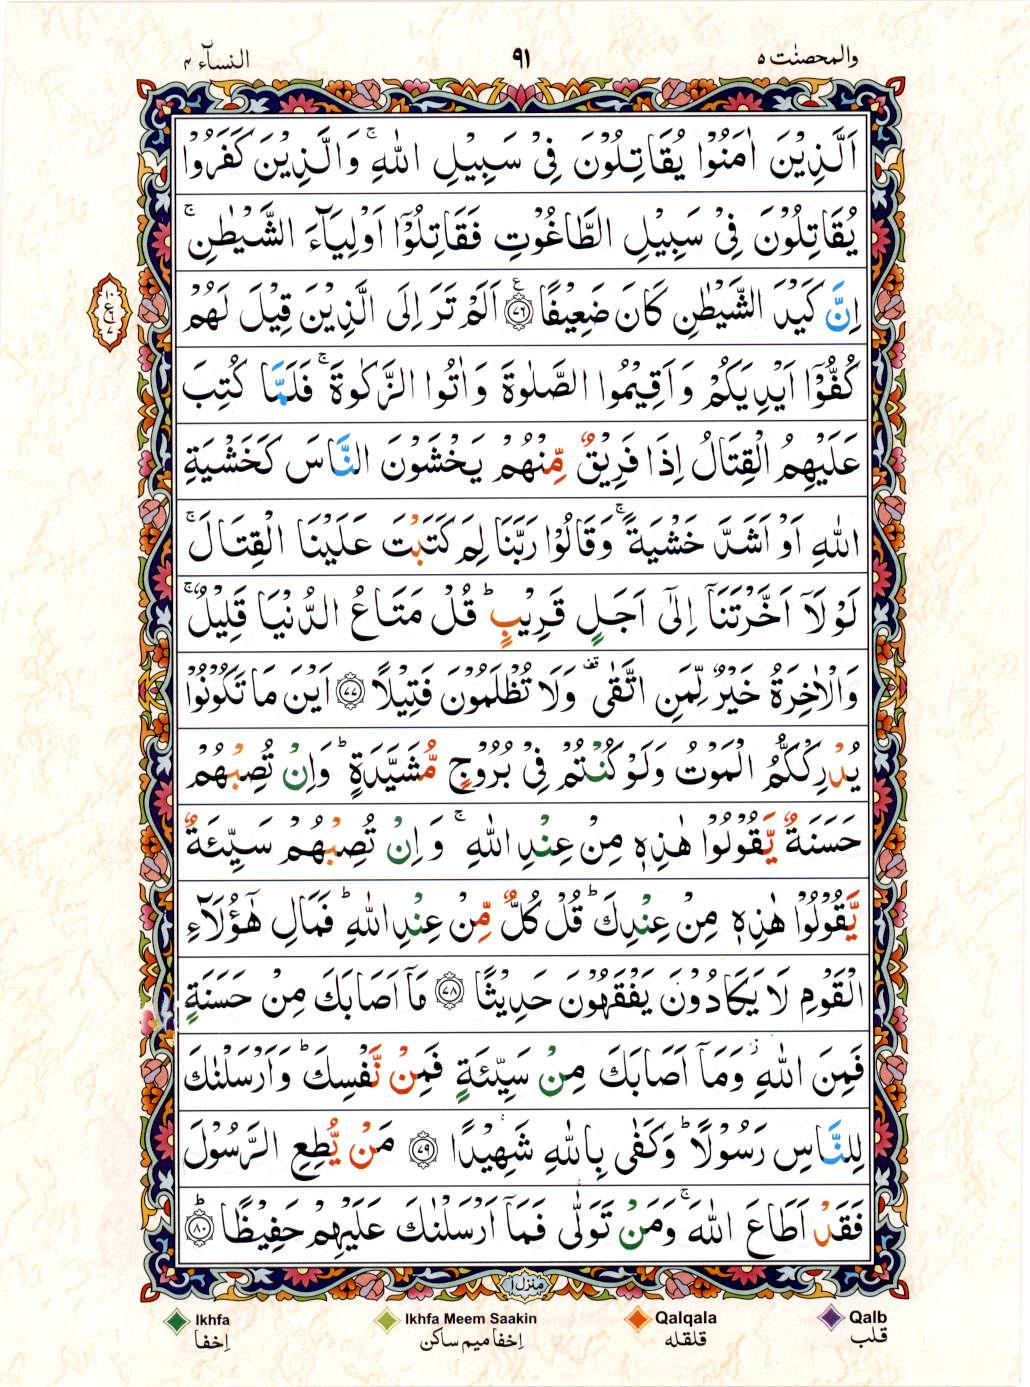 والمحصنٰت ٥
٩١
النسآء ٤
اَلَّذِيْنَ اٰمَنُوْا يُقَاتِلُوْنَ فِيْ سَبِيْلِ اللّٰهِ ۚ وَالَّذِيْنَ كَفَرُوْا
يُقَاتِلُوْنَ فِيْ سَبِيْلِ الطَّاغُوْتِ فَقَاتِلُوْۤا اَوْلِيَآءَ الشَّيْطٰنِ ۚ
اِنَّ كَيْدَ الشَّيْطٰنِ كَانَ ضَعِيْفًا ﴿٧٦﴾ اَلَمْ تَرَ اِلَى الَّذِيْنَ قِيْلَ لَهُمْ
كُفُّوْۤا اَيْدِيَكُمْ وَاَقِيْمُوا الصَّلٰوةَ وَاٰتُوا الزَّكٰوةَ ۚ فَلَمَّا كُتِبَ
عَلَيْهِمُ الْقِتَالُ اِذَا فَرِيْقٌ مِّنْهُمْ يَخْشَوْنَ النَّاسَ كَخَشْيَةِ
اللّٰهِ اَوْ اَشَدَّ خَشْيَةً ۚ وَقَالُوْا رَبَّنَا لِمَ كَتَبْتَ عَلَيْنَا الْقِتَالَ ۚ
لَوْلَاۤ اَخَّرْتَنَاۤ اِلٰۤى اَجَلٍ قَرِيْبٍ ؕ قُلْ مَتَاعُ الدُّنْيَا قَلِيْلٌ ۚ
وَالْاٰخِرَةُ خَيْرٌ لِّمَنِ اتَّقٰى ۫ وَلَا تُظْلَمُوْنَ فَتِيْلًا ﴿٧٧﴾ اَيْنَ مَا تَكُوْنُوْا
يُدْرِكْكُّمُ الْمَوْتُ وَلَوْ كُنْتُمْ فِيْ بُرُوْجٍ مُّشَيَّدَةٍ ؕ وَاِنْ تُصِبْهُمْ
حَسَنَةٌ يَّقُوْلُوْا هٰذِهٖ مِنْ عِنْدِ اللّٰهِ ۚ وَاِنْ تُصِبْهُمْ سَيِّئَةٌ
يَّقُوْلُوْا هٰذِهٖ مِنْ عِنْدِكَ ؕ قُلْ كُلٌّ مِّنْ عِنْدِ اللّٰهِ ؕ فَمَالِ هٰۤؤُلَآءِ
الْقَوْمِ لَا يَكَادُوْنَ يَفْقَهُوْنَ حَدِيْثًا ﴿٧٨﴾ مَاۤ اَصَابَكَ مِنْ حَسَنَةٍ
فَمِنَ اللّٰهِ ؗ وَمَاۤ اَصَابَكَ مِنْ سَيِّئَةٍ فَمِنْ نَّفْسِكَ ؕ وَاَرْسَلْنٰكَ
لِلنَّاسِ رَسُوْلًا ؕ وَكَفٰى بِاللّٰهِ شَهِيْدًا ﴿٧٩﴾ مَنْ يُّطِعِ الرَّسُوْلَ
فَقَدْ اَطَاعَ اللّٰهَ ۚ وَمَنْ تَوَلّٰى فَمَاۤ اَرْسَلْنٰكَ عَلَيْهِمْ حَفِيْظًا ؕ ﴿٨٠﴾
منزل ١
Ikhfa
اِخفا
Ikhfa Meem Saakin
اِخفا میم ساکن
Qalqala
قلقله
Qalb
قلب